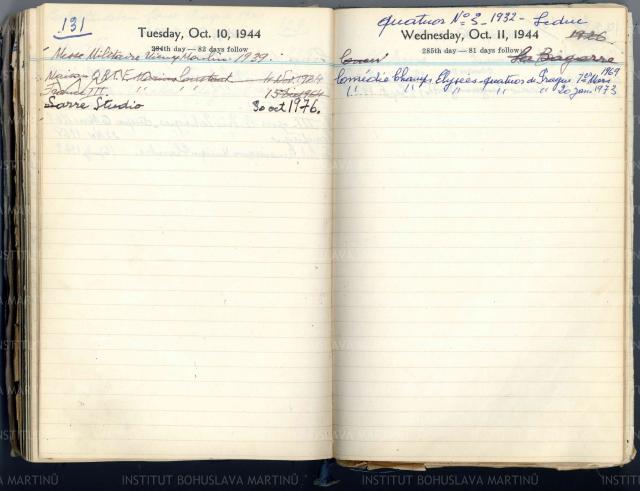 131
Tuesday, Oct. 10, 1944
284th day — 82 days follow
Messe Militaire Vieux Martin. 1939.
France III. " " " 15
Sarre Studio 30 oct 1976.
quatuor Nº 3 - 1932 - Leduc
Wednesday, Oct. 11, 1944 1926
285th day — 81 days follow
La Bagarre
Comédie Champs Elysées - quatuor de Prague 7 Mars 1969
" " " " " 20 jan. 1973
INSTITUT BOHUSLAVA MARTINŮ INSTITUT BOHUSLAVA MARTINŮ